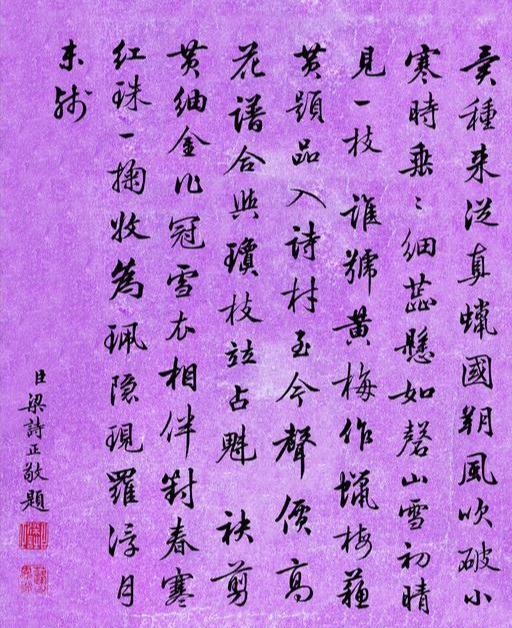 異種来從真蠟國朔風吹破小
寒時垂〻細蕋懸如磬山雪初晴
見一枝 誰號黄梅作蠟梅蘓
黄題品入詩材至今聲價高
花譜合與瓊枝竝占魁 袂剪
黄紬金作冠雪衣相伴對春寒
紅珠一掬收為珮隠現羅浮月
未殘
臣梁詩正敬題